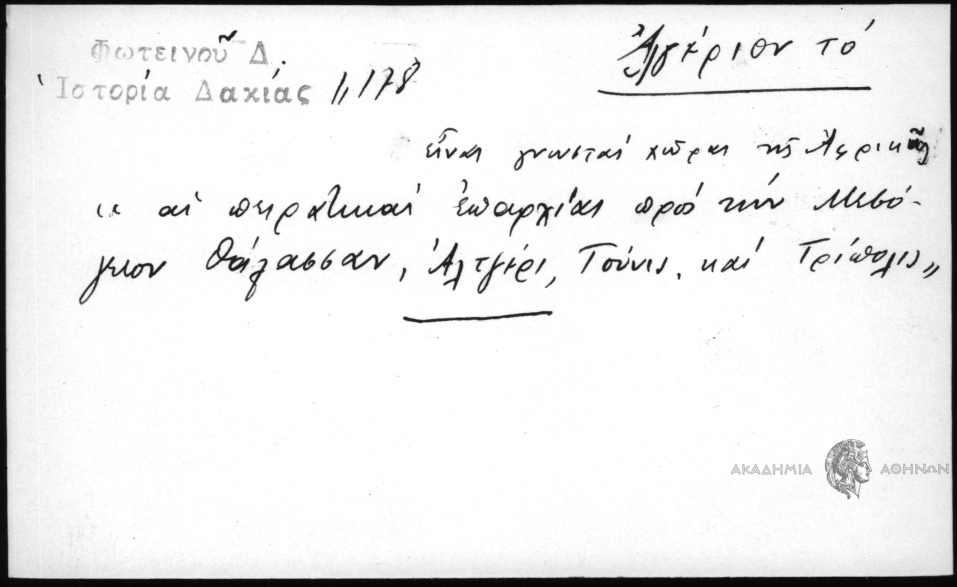 Φωτεινοῦ Δ.
Ἱστορία Δακίας 11, 178
Ἀλγέριον τό
εἶναι γνωσταί χῶραι τῆς Ἀφρικῆς
αἱ πειρατικαί ἐπαρχίαι πρός τήν Μεσό-
γειον θάλασσαν, Ἀλτζέρι, Τούνις, καί Τρίπολις„
ΑΚΑΔΗΜΙΑ ΑΘΗΝΩΝ